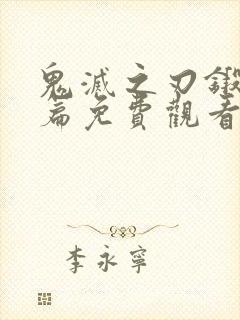 鬼滅之刃鍛
篇免費觀看
李永寧